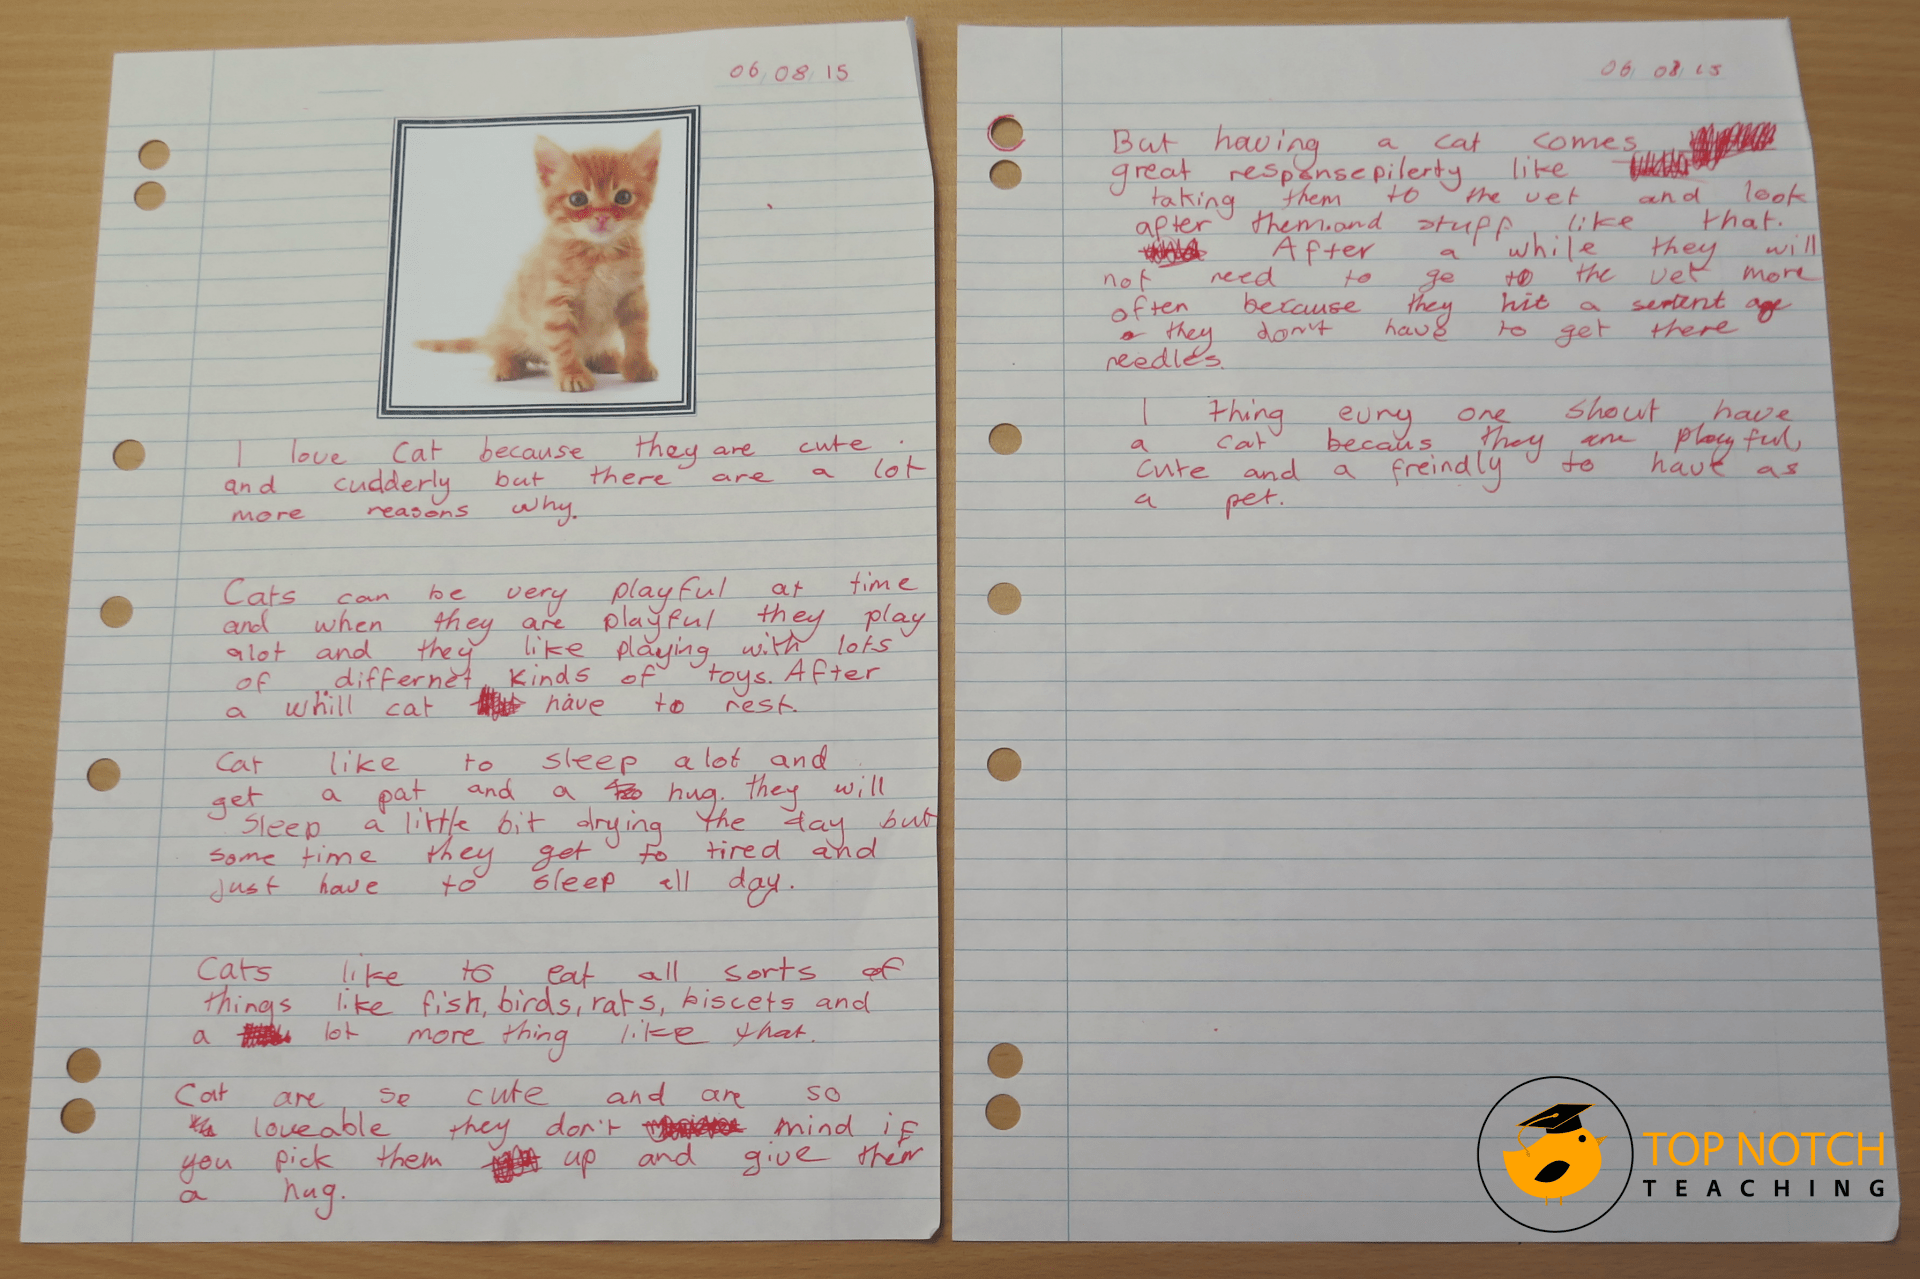 06/08/15
I love Cat because they are cute
and cudderly but there are a lot
more reasons why.
Cats can be very playful at time
and when they are playful they play
alot and they like playing with lots
of differnet kinds of toys. After
a whill cat have to rest.
Cat like to sleep alot and
get a pat and a hug. they will
sleep a little bit drying the day but
some time they get to tired and
just have to sleep all day.
Cats like to eat all sorts of
things like fish, birds, rats, biscets and
a lot more thing like that.
Cat are so cute and are so
loveable they don't mind if
you pick them up and give them
a hug.
06/08/15
But having a cat comes
great responsepilerty like
taking them to the vet and look
after them.and stuff like that.
After a while they will
not need to go to the vet more
often because they hit a sertent age
they don't have to get there
needles.
I thing evry one shout have
a cat becaus they are playful,
cute and a freindly to have as
a pet.
TOP NOTCH
TEACHING